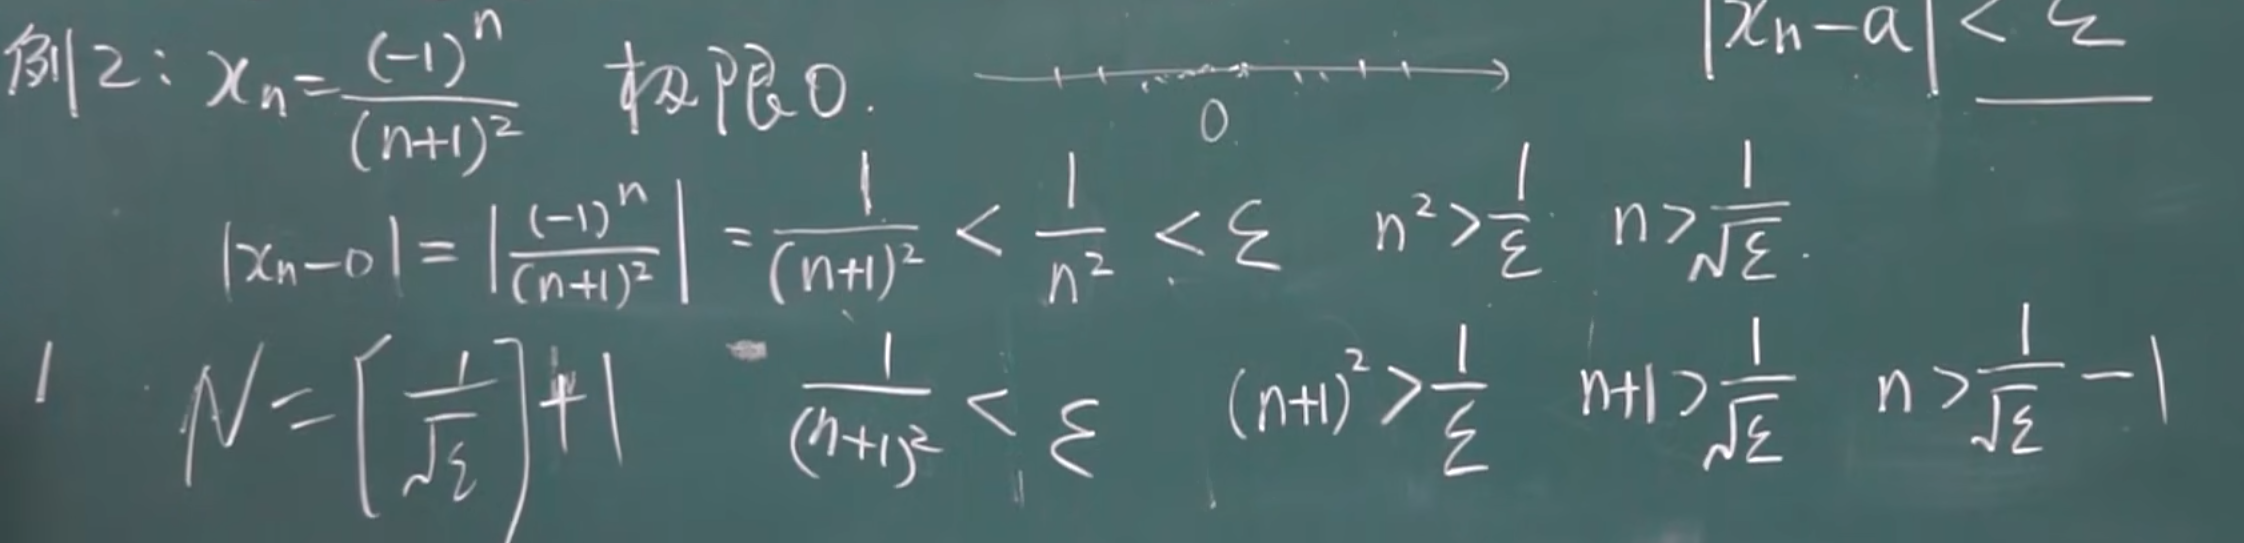 例2: xₙ = (-1)ⁿ/(n+1)² 极限0. 0 |xₙ-a| < ε
|xₙ-0| = |(-1)ⁿ/(n+1)²| = 1/(n+1)² < 1/n² < ε n² > 1/ε n > 1/√ε.
N = [1/√ε]+1 1/(n+1)² < ε (n+1)² > 1/ε n+1 > 1/√ε n > 1/√ε - 1